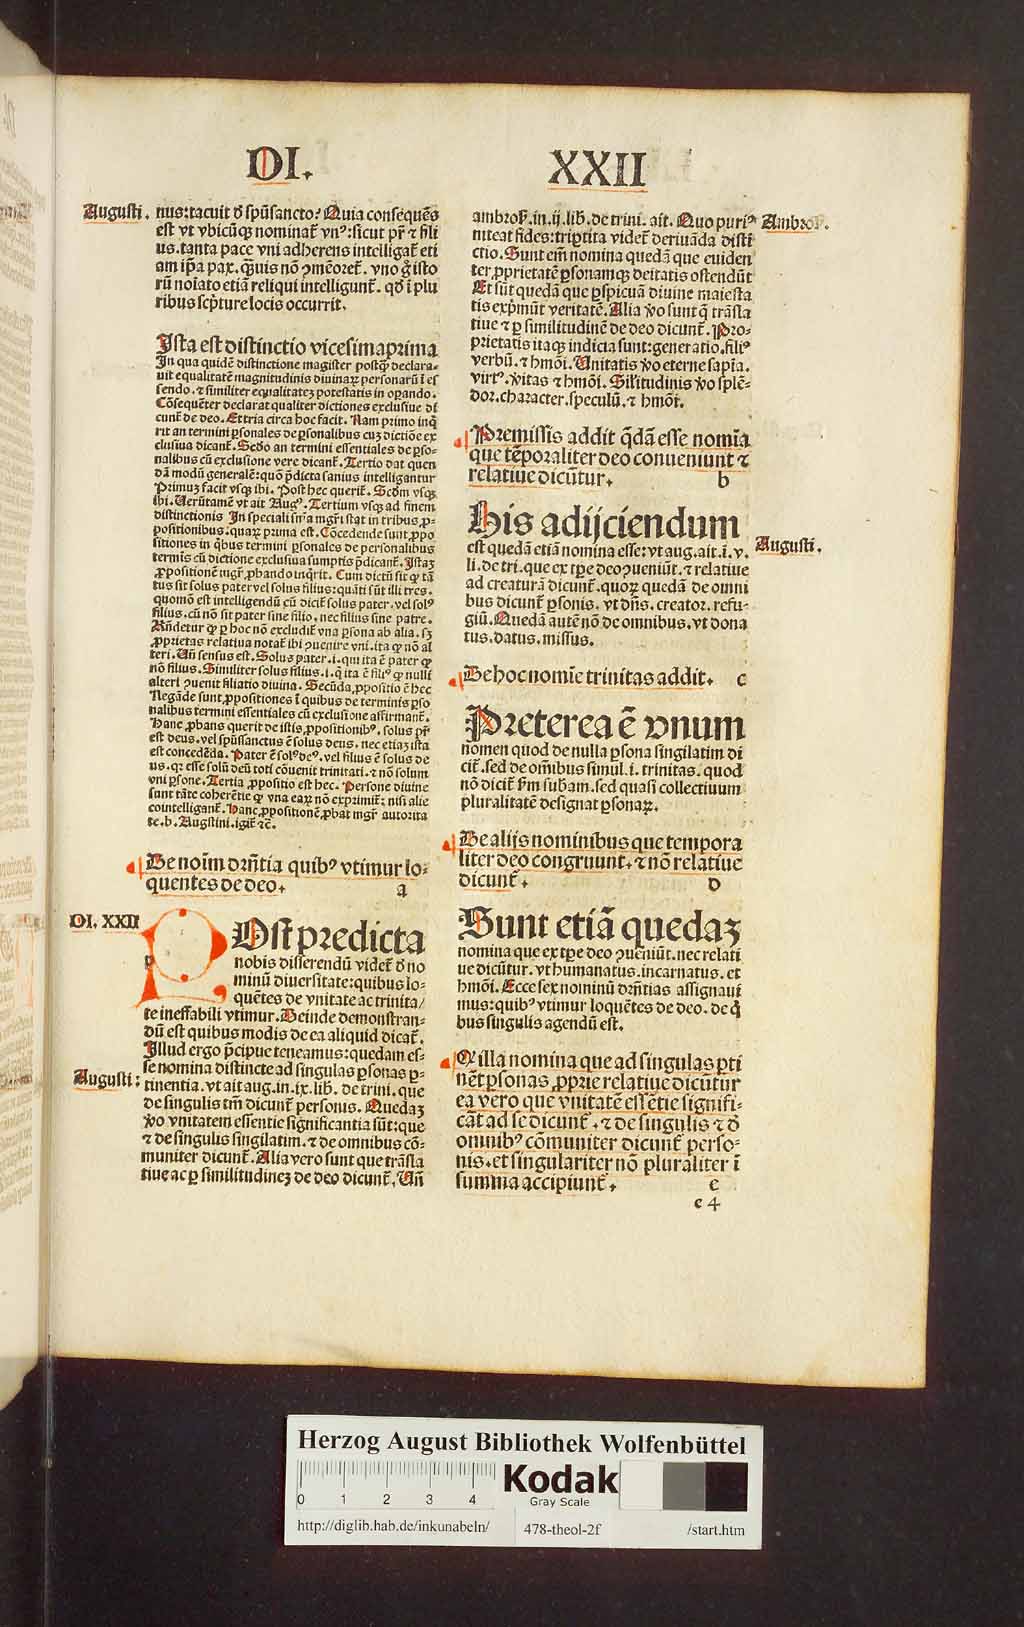 DI.
XXII
Augusti.
nus: tacuit ð spūsancto? Quia consequēs
est vt vbicūq̄ nominat̄ vnꝰ: sicut pr̄ ⁊ fili
us. tanta pace vni adherens intelligat̄ eti
am ip̄a pax. q̄uis nō ꝯmēoret̄. vno g̊ isto
rū noīato etiā reliqui intelligunt̄. qđ ī plu
ribus scp̄ture locis occurrit.
Ista est distinctio vicesimaprima
In qua quidē distinctione magister postq̄ declara-
uit equalitatē magnitudinis diuinaꝝ personarū ī es
sendo. ⁊ similiter eq̄ualitateꝫ potestatis in oꝑando.
Cōsequēter declarat qualiter dictiones exclusiue di
cunt̄ de deo. Et tria circa hoc facit. Nam primo inq̄
rit an termini ꝑsonales de ꝑsonalibus cuꝫ dictiōe ex
clusiua dicant̄. Scđo an termini essentiales de ꝑso-
nalibus cū exclusione vere dicant̄. Tertio dat quen
dā modū generalē: quo p̄dicta sanius intelligantur
Primuꝫ facit vsqꝫ ibi. Post hec querit̄. Scđm vsqꝫ
ibi. Uerūtamē vt ait Augꝰ. Tertium vsqꝫ ad finem
distinctionis In speciali sn̄ia mgr̄i stat in tribus ꝓ-
positionibus. quaꝝ prima est. Cōcedende sunt ꝓpo
sitiones in q̄bus termini ꝑsonales de personalibus
termīs cū dictione exclusiua sumptis p̄dicant̄. Istaꝫ
ꝓpositionē mgr̄. ꝓbando inq̄rit. Cum dictū sit ꝙ tā
tus sit solus pater vel solus filius: quāti sūt illi tres.
quomō est intelligendū cū dicit̄ solus pater. vel solꝰ
filius. cū nō sit pater sine filio. nec filius sine patre.
Rn̄detur ꝙ ꝑ hoc nō excludit̄ vna ꝑsona ab alia. sꝫ
ꝓprietas relatiua notat̄ ibi ꝯuenire vni. ita ꝙ nō al
teri. Un̄ sensus est. Solus pater. i. qui ita ē pater ꝙ
nō filius. Similiter solus filius. i. q̄ ita ē filiꝰ ꝙ nulli
alteri ꝯuenit filiatio diuina. Secūda ꝓpositio ē hec
Negāde sunt ꝓpositiones ī quibus de terminis ꝑso
nalibus termini essentiales cū exclusione affirmant̄.
Hanc ꝓbans querit de istis ꝓpositionibꝰ. solus pr̄
est deus. vel spūssanctus ē solus deus. nec etiaꝫ ista
est concedēda. Pater ē solꝰ deꝰ. vel filius ē solus de
us. qꝛ esse solū deū toti cōuenit trinitati. ⁊ nō solum
vni ꝑsone. Tertia ꝓpositio est hec. Persone diuine
sunt tāte coherētie ꝙ vna eaꝝ nō exprimit̄: nisi alie
cointelligant̄. Hanc ꝓpositionē ꝓbat mgr̄ autorita
te. b. Augstini. igit̄ ⁊c̄.
De noīm dr̄ntia quibꝰ vtimur lo-
quentes de deo. a
DI. XXII
POst predicta
nobis disserendū videt̄ ð no
minū diuersitate: quibus lo-
quētes de vnitate ac trinita/
te ineffabili vtimur. Deinde demonstran-
dū est quibus modis de ea aliquid dicat̄.
Illud ergo p̄cipue teneamus: quedam es-
Augusti:
se nomina distincte ad singulas ꝑsonas ꝑ-
tinentia. vt ait aug. in. ix. lib̄. de trini. que
de singulis tm̄ dicunt̄ personis. Quedaꝫ
ꝟo vnitatem essentie significantia sūt: que
⁊ de singulis singilatim. ⁊ de omnibus cō-
muniter dicunt̄. Alia vero sunt que trāsla
tiue ac ꝑ similitudineꝫ de deo dicunt̄. Un̄
ambros̄. in. ij. lib̄. de trini. ait. Quo puriꝰ
Ambros̄.
niteat fides: triptita videt̄ deriuāda disti
ctio. Sunt em̄ nomina quedā que euiden
ter ꝓprietatē ꝑsonamqꝫ deitatis ostendūt
Et sūt quedā que ꝑspicuā diuine maiesta
tis exp̄mūt veritatē. Alia ꝟo sunt q̄ trāsla
tiue ⁊ ꝑ similitudinē de deo dicunt̄. Pro-
prietatis itaqꝫ indicia sunt: generatio. filiꝰ
verbū. ⁊ hmōi. Unitatis ꝟo eterne sapīa.
virtꝰ. ꝟitas ⁊ hmōi. Sil̄itudinis ꝟo splē-
dor. character. speculū. ⁊ hmōi.
Premissis addit q̄dā esse nomīa
que tēporaliter deo conueniunt ⁊
relatiue dicūtur. b
His adijciendum
Augusti.
est quedā etiā nomina esse: vt aug. ait. ī. v.
li. de tri. que ex tpe deo ꝯueniūt. ⁊ relatiue
ad creaturā dicunt̄. quoꝝ quedā de omni
bus dicunt̄ ꝑsonis. vt dn̄s. creator. refu-
giū. Quedā autē nō de omnibus. vt dona
tus. datus. missus.
De hoc nomīe trinitas addit. c
Preterea ē vnum
nomen quod de nulla ꝑsona singilatim di
cit̄. sed de om̄ibus simul. i. trinitas. quod
nō dicit̄ ẜm sub̄am. sed quasi collectiuum
pluralitatē designat ꝑsonaꝝ.
De alijs nominibus que tempora
liter deo congruunt. ⁊ nō relatiue
dicunt̄. d
Sunt etiā quedaꝫ
nomina que ex tpe deo ꝯueniūt. nec relati
ue dicūtur. vt humanatus. incarnatus. et
hmōi. Ecce sex nominū dr̄ntias assignaui
mus: quibꝰ vtimur loquētes de deo. de q̄
bus singulis agendū est.
Qꝫ illa nomina que ad singulas ꝑti
nēt ꝑsonas ꝓprie relatiue dicūtur
ea vero que vnitatē essētie signifi-
cāt ad se dicunt̄. ⁊ de singulis ⁊ ð
omnibꝰ cōmuniter dicunt̄ perso-
nis. et singulariter nō pluraliter ī
summa accipiunt̄. e
c 4
Herzog August Bibliothek Wolfenbüttel
0 1 2 3 4
Kodak
Gray Scale
http://diglib.hab.de/inkunabeln/
478-theol-2f
/start.htm